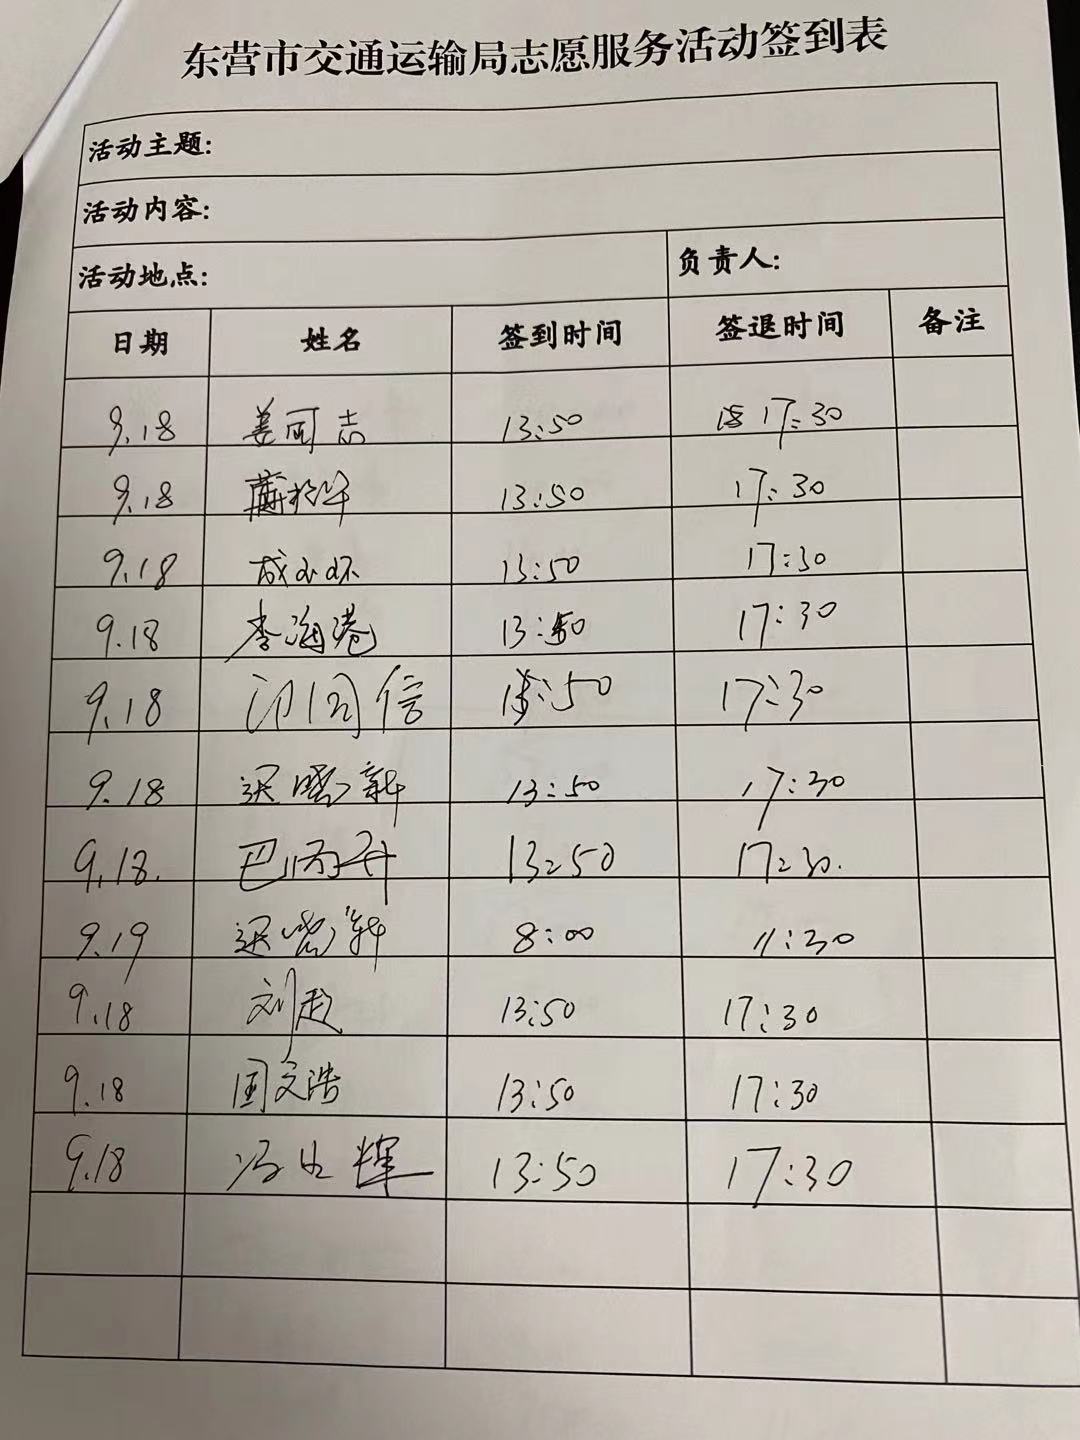 东营市交通运输局志愿服务活动签到表
活动主题:
活动内容:
活动地点: 负责人:
日期 姓名 签到时间 签退时间 备注
9.18 姜同志 13:50 17:30
9.18 13:50 17:30
9.18 13:50 17:30
9.18 李海港 13:50 17:30
9.18 信 13:50 17:30
9.18 迟晓新 13:50 17:30
9.18. 巴丙升 13:50 17:30.
9.19 迟 8:00 11:30
9.18 刘 13:50 17:30
9.18 国文浩 13:50 17:30
9.18 冯 辉 13:50 17:30